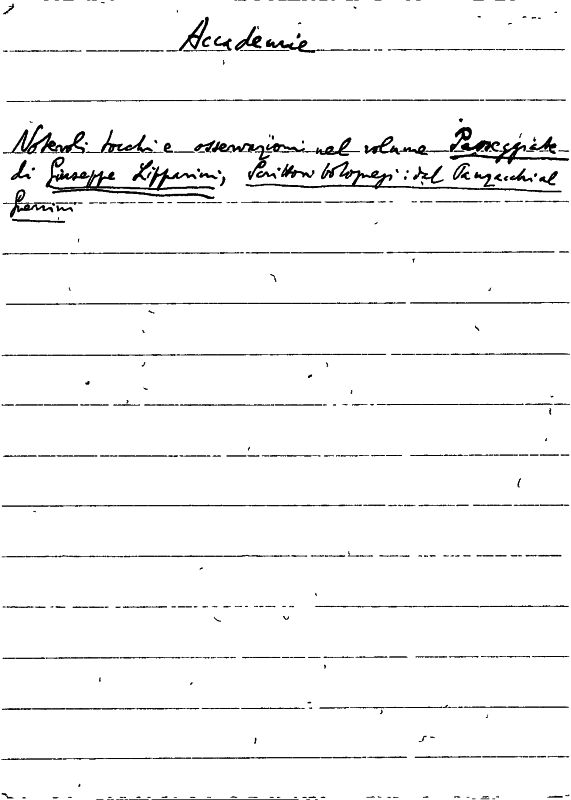 Accademie
Notevoli tocchi e osservazioni nel volume Passeggiate
di Giuseppe Lipparini, Scrittori bolognesi: dal Panzacchi al
Guerrini